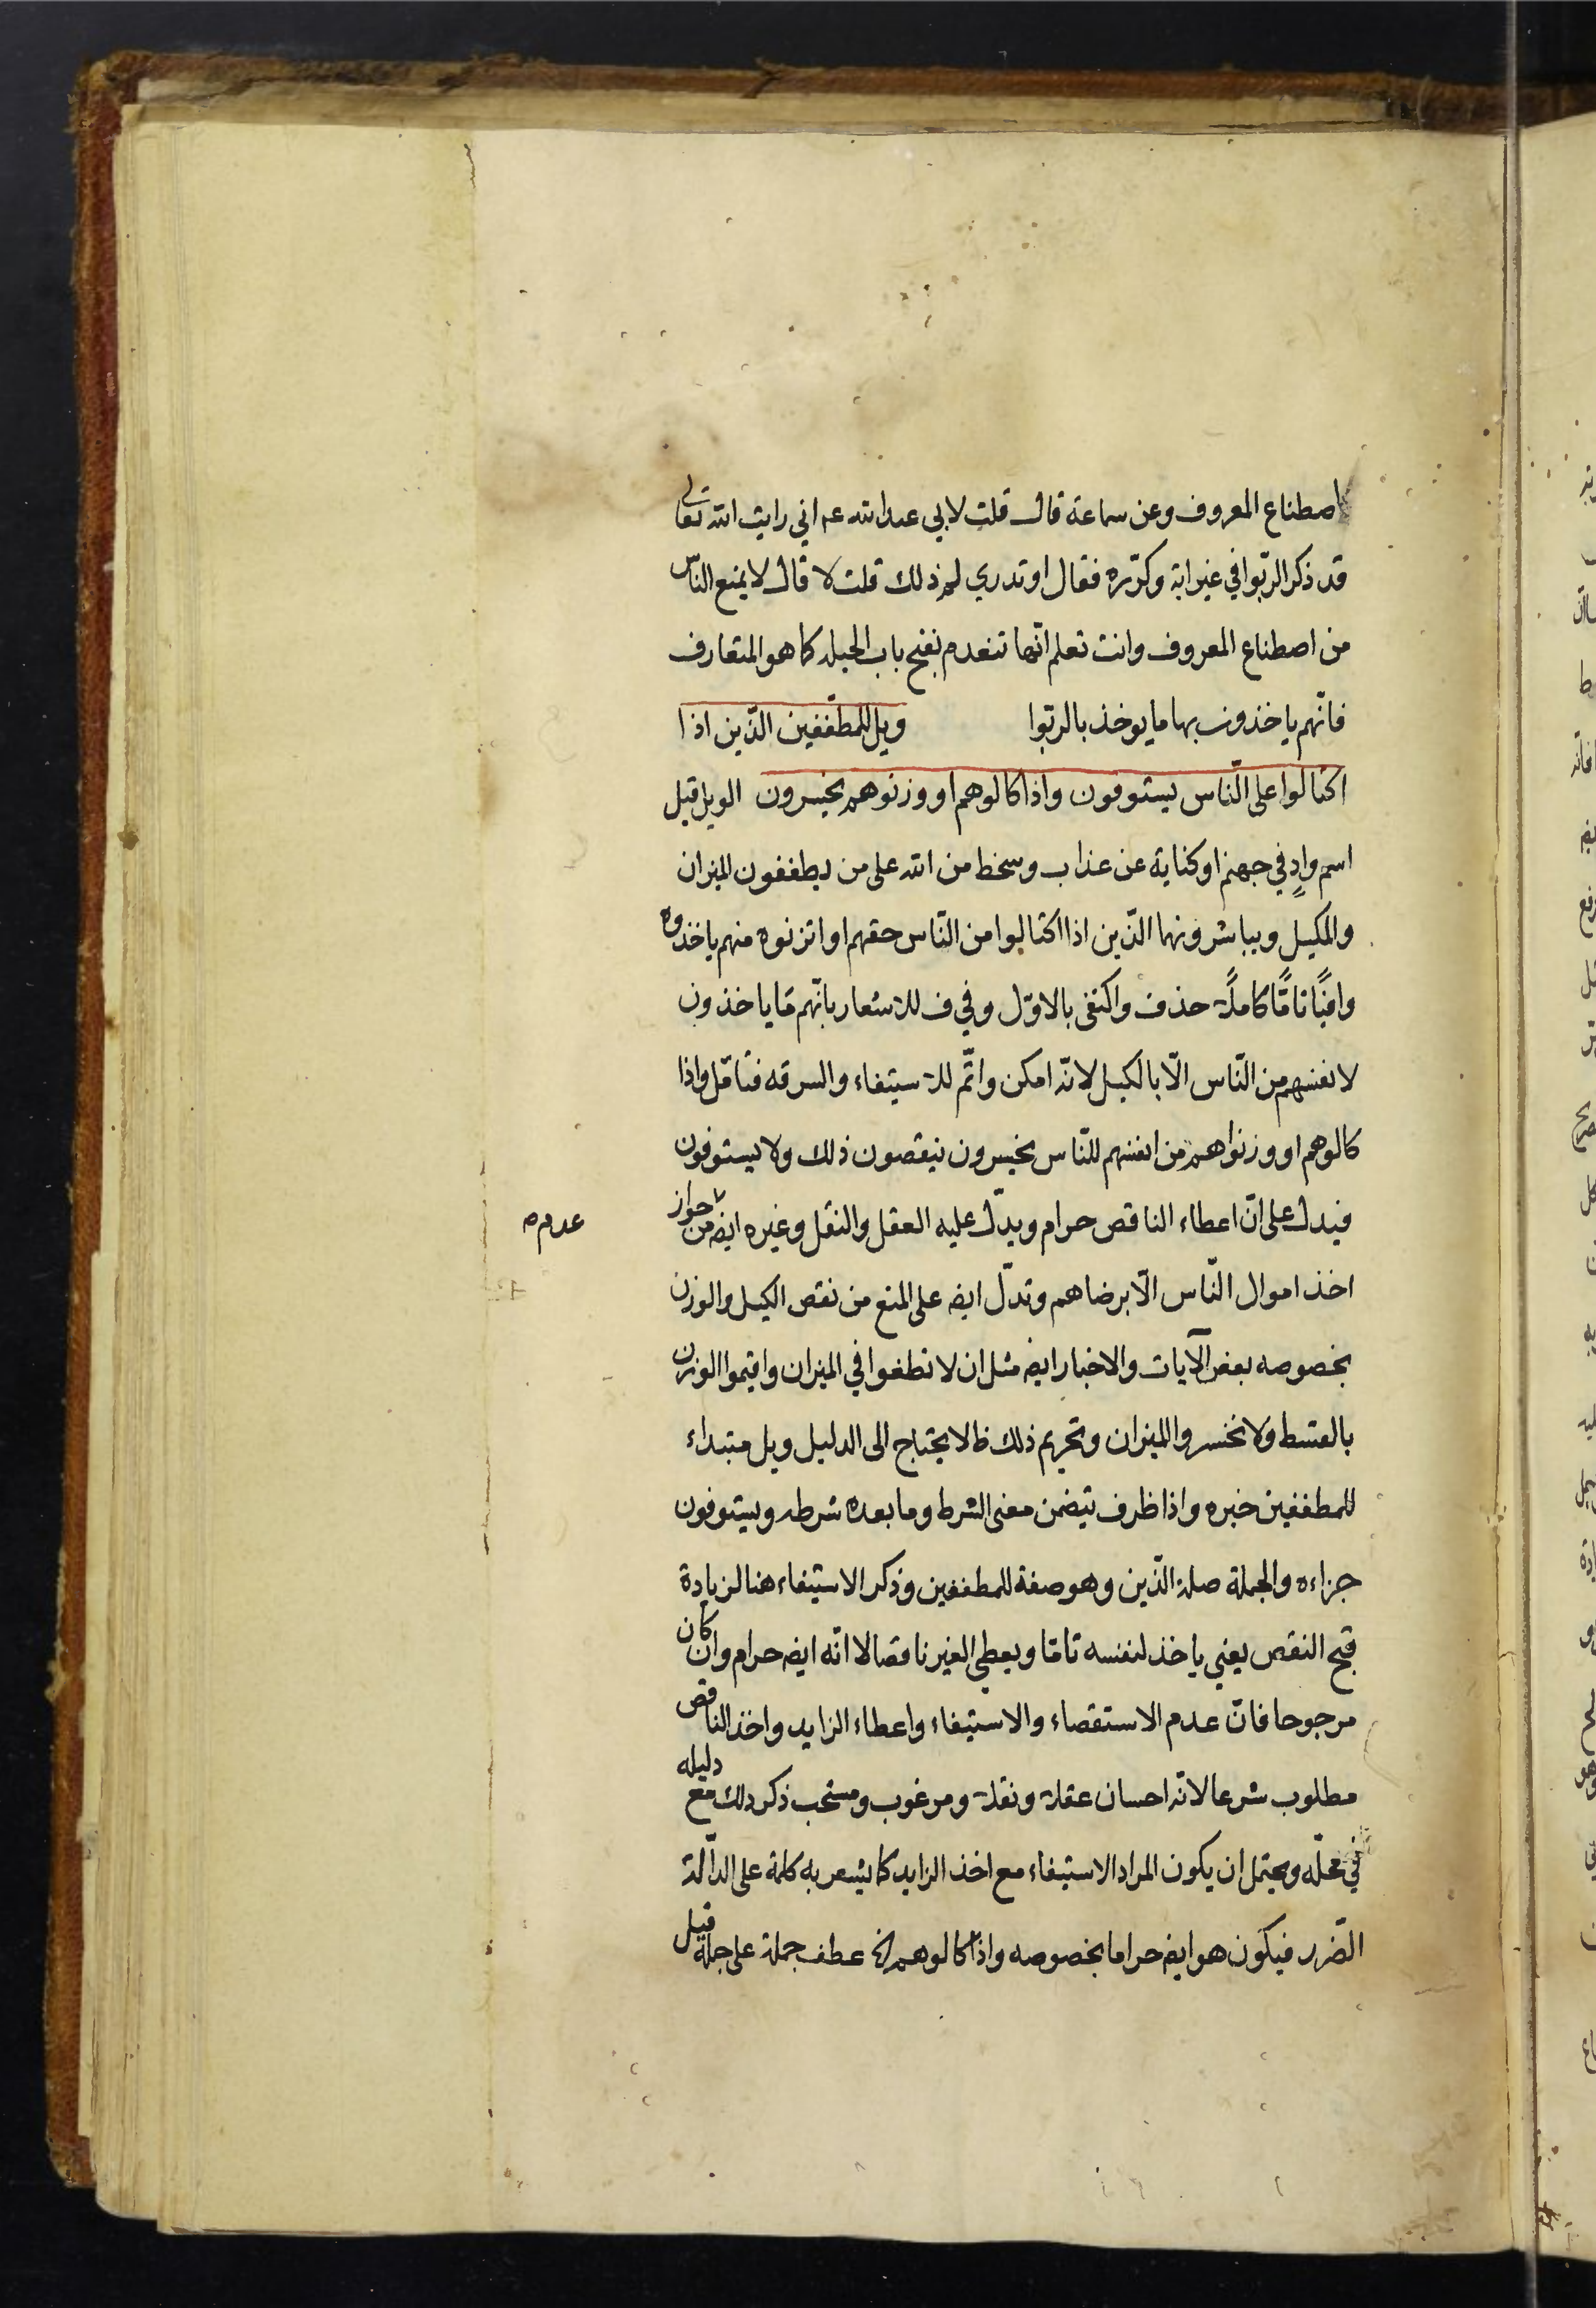 اصطناع المعروف وعن سماعة قال قلت لابي عبدالله عم اني رايت الله تعالى
قد ذكر الرّبوا في غير اية وكرّره فقال اوتدري لم ذلك قلت لا قال لا يمنع الناس
من اصطناع المعروف وانت تعلم انّها تنعدم بفتح باب الحيله كما هو المتعارف
فانّهم ياخذون بها ما يوخذ بالربّوا ويل للمطفّفين الّذين اذا
اكتالوا على النّاس يستوفون واذا كالوهم او وزنوهم يخسرون الويل قيل
اسم وادٍ في جهنم او كناية عن عذاب وسخط من الله على من يطففون الميزان
والمكيل ويباشرونها الّذين اذا اكتالوا من النّاس حقهم او اتزنوه منهم ياخذوه
وافيًا تامًّا كاملًا حذف واكتفى بالاوّل وفي ف للاشعار بانّهم مّا ياخذون
لانفسهم من النّاس الّا بالكيل لانّه امكن واتّم للاستيفاء والسرقه فتامّل واذا
كالوهم او وزنواهم من انفسهم للنّاس يخسرون ينقصون ذلك ولا يستوفون
فيدل على انّ اعطاء الناقص حرام ويدّل عليه العقل والنقل وغيره ايضه من جواز
عدم صه
اخذ اموال النّاس الّا برضاهم وتدّل ايضه على المنع من نقص الكيل والوزن
بخصوصه بعض الآيات والاخبار ايضه مثل ان لا تطغوا في الميزان واقيموا الوزن
بالقسط ولا تخسروا الميزان وتحريم ذلك ظ لا يحتاج الى الدليل ويل مبتداء
للمطففين خبره واذا ظرف يتضمن معنى الشرط وما بعده شرطه ويستوفون
جزاءه والجملة صلة الّذين وهو صفة للمطففين وذكر الاستيفاء هنا لزيادة
قبح النقص يعني ياخذ لنفسه تامّا ويعطي الغير ناقصا لا انّه ايضه حرام وان كان
مرجوحا فانّ عدم الاستقصاء والاستيفاء واعطاء الزايد واخذ الناقص
مطلوب شرعا لانّه احسان عقلا ونقلا ومرغوب ومستحب ذكر ذلك مع دليله
في محلّه ويحتمل ان يكون المراد الاستيفاء مع اخذ الزايد كما يشعر به كلمة على الدّالة
الضّرر فيكون هو ايضه حراما بخصوصه واذا كالوهم الخ عطف جملة على جملة قيل